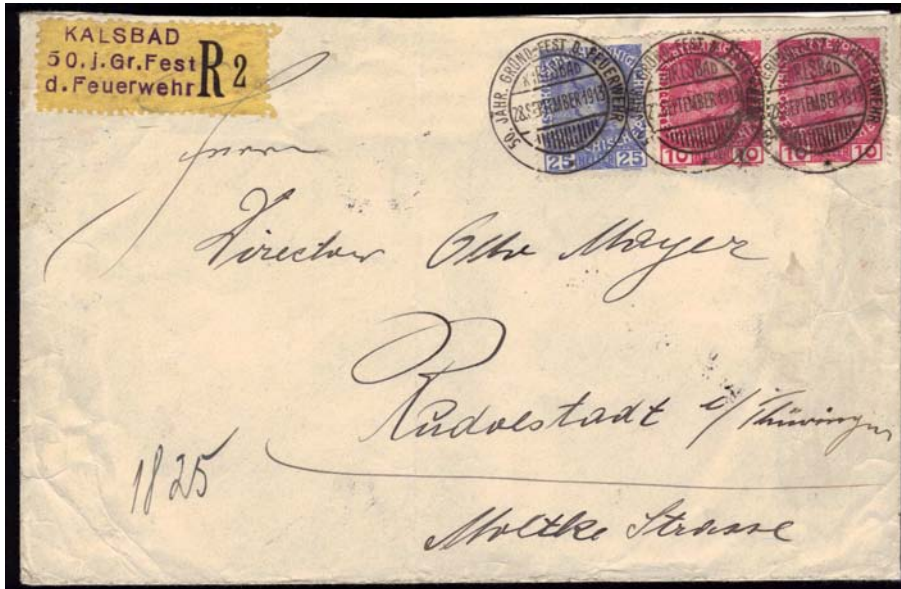 KALSBAD
50.j.Gr.Fest
d.Feuerwehr
R 2
50. JÄHR. GRÜND-FEST D. FEUERWEHR
KARLSBAD
28.SEPTEMBER 1913
25 25
KARLSBAD
SEPTEMBER 1913
10 10
SEPTEMBER 1913
10 10
Herrn
Director Otto Mayer
Rudolstadt i/Thüringen
1825
Moltke Strasse